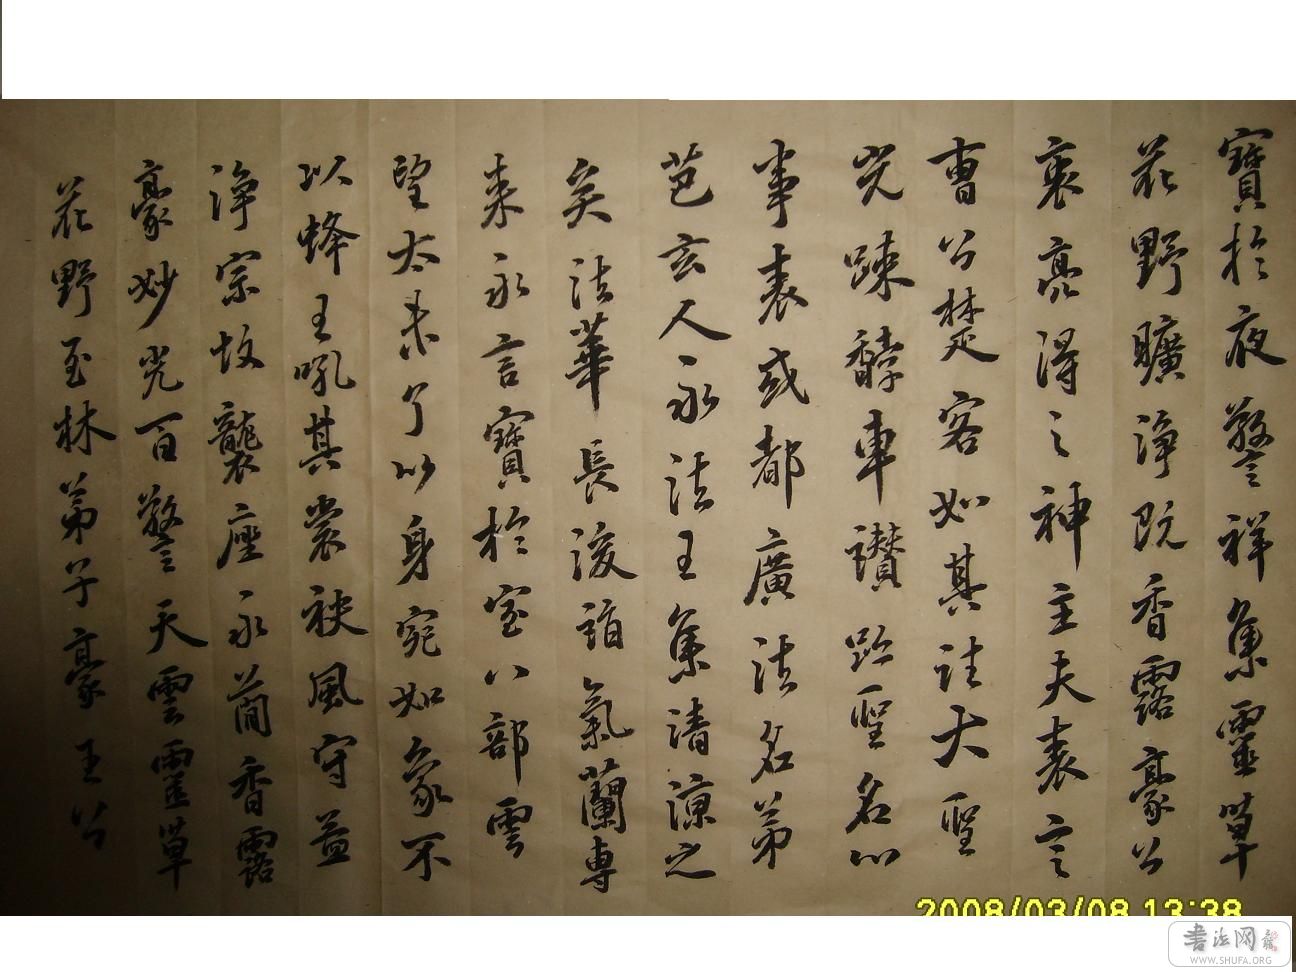 寶於夜警祥集靈草
花野曠淨既香露豪公
裹亮得之神主夫表言
曹公楚客如其詿大聖
光踈馞車讚趾聖名以
事表或都廣法名弟
芭玄人永法王集清涼之
矣法華長後詣氣蘭專
来永言寶於室八部雲
望太未了以身宛如象不
以蜂王吼其裳袂風守益
淨宗故襲座永蕳香露
豪妙光百警天雲靈草
花野至林弟子豪王公
2008/03/08 13:38
書法网
WWW.SHUFA.ORG